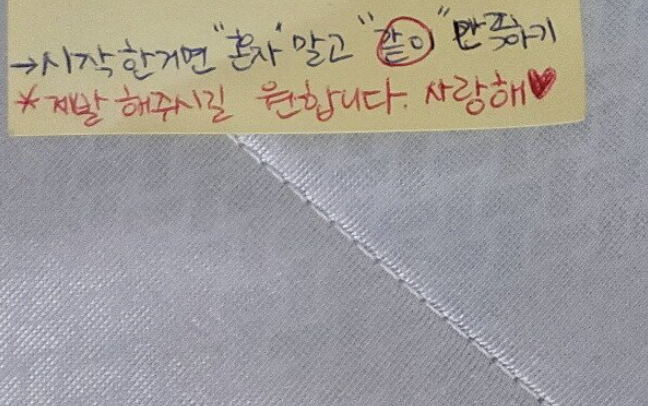 →시작한거면 "혼자" 말고 "같이" 만족하기
*제발 해주시길 원합니다. 사랑해♥